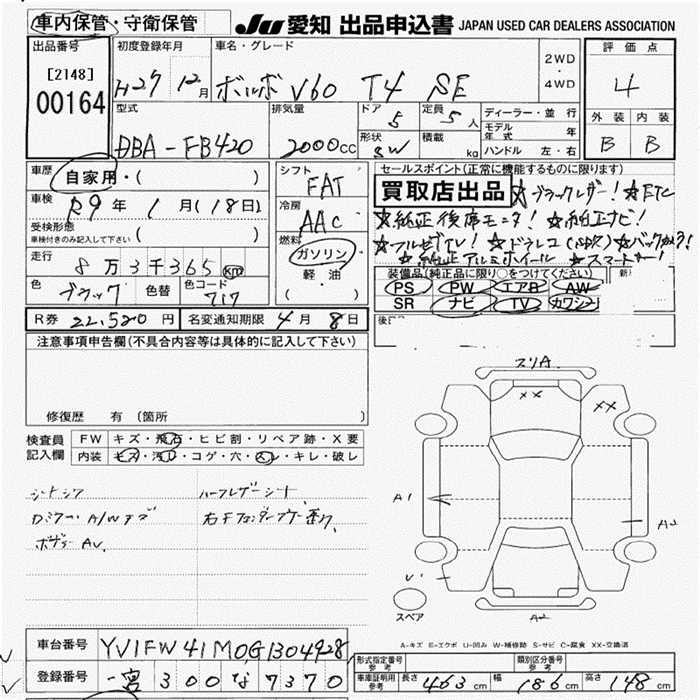 車内保管・守衛保管
JU 愛知 出品申込書 JAPAN USED CAR DEALERS ASSOCIATION
出品番号
[2148]
00164
初度登録年月
H27 12月
車名・グレード
ボルボ V60 T4 SE
2WD
・
4WD
評価点
4
外装 内装
B B
型式
DBA-FB420
排気量
2000cc
ドア
5
定員
5人
形状
SW
積載
kg
ディーラー・並行
モデル年式 年
ハンドル 左・右
車歴
自家用・( )
車検
R9年 1月(18日)
受検形態
車検付きのみ記入して下さい ( )
走行
8万3千365 km
色
ブラック
色替
色コード
717
シフト
FAT
冷房
AAC
燃料
ガソリン
軽・油
( )
セールスポイント(正常に機能するものに限ります)
買取店出品 ★ブラックレザー! ★ETC
★純正後席モニタ! ★純正ナビ!
★フルセグTV! ★ドラレコ ★バックカメラ!
★純正アルミホイール ★スマートキー!
装備品(純正品に限り○をつけてください)
PS PW エアB AW
SR ナビ TV カワシート
R券 22,520円
名変通知期限 4月8日
注意事項申告欄(不具合内容等は具体的に記入して下さい)
修復歴 有 (箇所
検査員
記入欄
FW キズ・飛石・ヒビ割・リペア跡・X要
内装 キズ・汚レ・コゲ・穴・スレ・キレ・破レ
シートシワ
ハーフレザーシート
ドアミラー・A/Wキズ
ボデーAU
スリA
XX
XX
A1
A2
U
A2
スペア
A-キズ E-エクボ U-凹み W-補修跡 S-サビ C-腐食 XX-交換済
車台番号 YV1FW41M0G1304928
登録番号 一宮 300 な 7370
形式指定番号
参考
類別区分番号
参考
車庫証明用
参考
長さ 463cm 幅 186cm 高さ 148cm